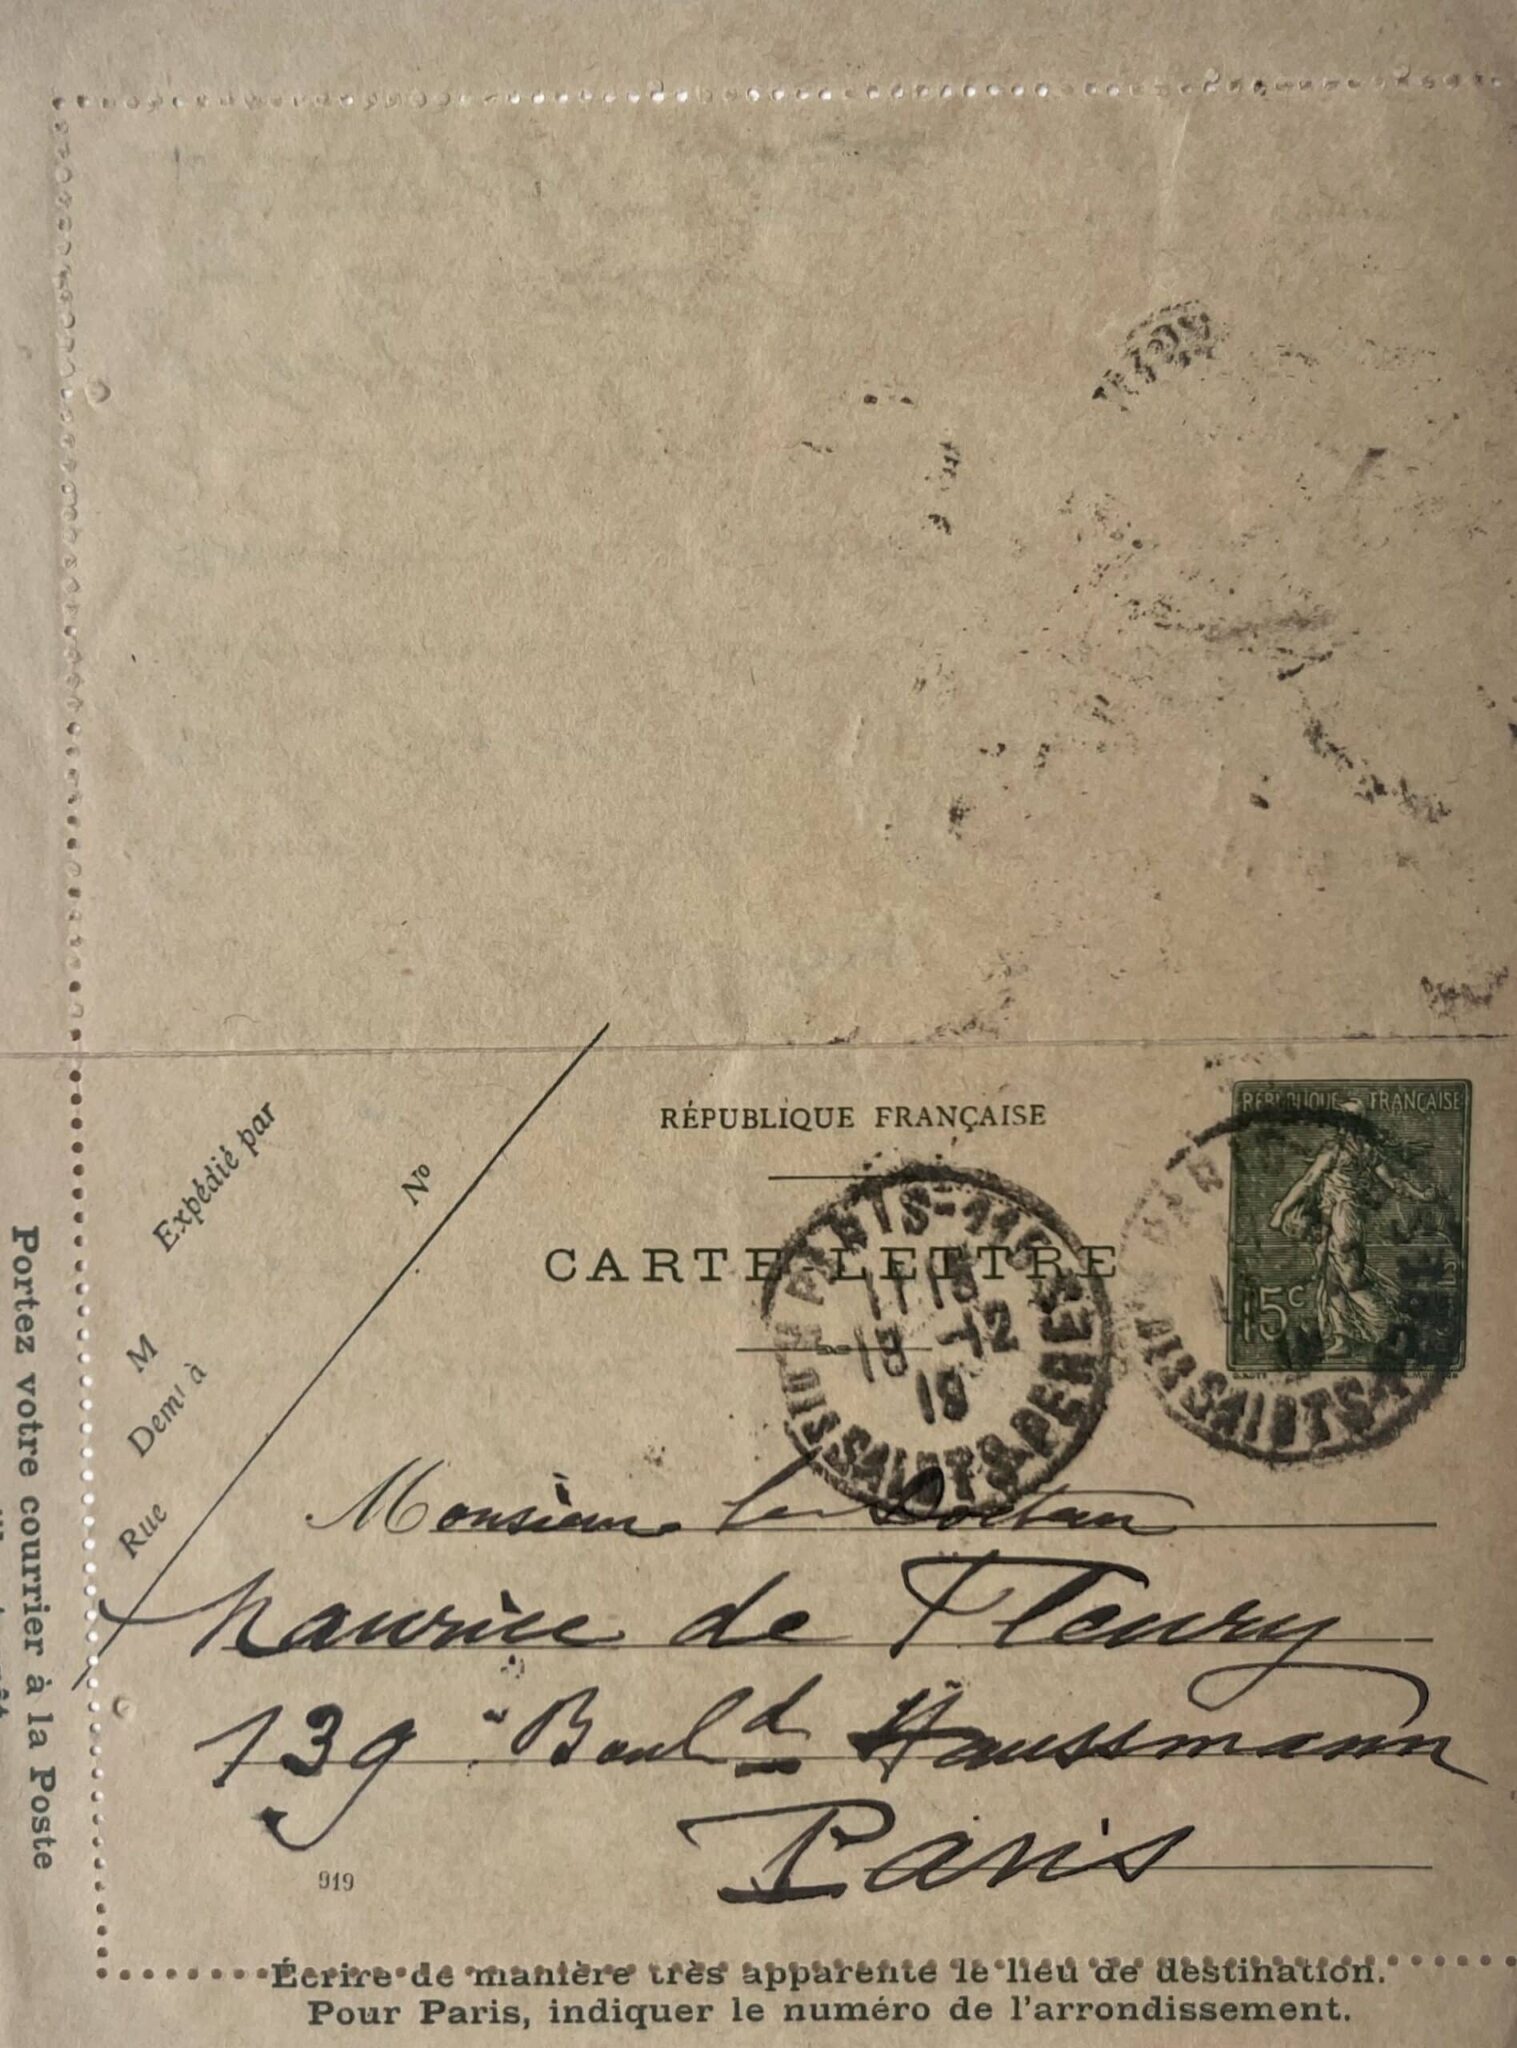 RÉPUBLIQUE FRANÇAISE
CARTE-LETTRE
RÉPUBLIQUE FRANÇAISE
15c
Expédié par
No
M
Demt à
Rue
PARIS-116
17 15
18 -12
19
R. DES SAINTS PERES
SAINTS
Monsieur le Docteur
Maurice de Fleury
139 Bould Haussmann
Paris
919
Écrire de manière très apparente le lieu de destination.
Pour Paris, indiquer le numéro de l'arrondissement.
Portez votre courrier à la Poste